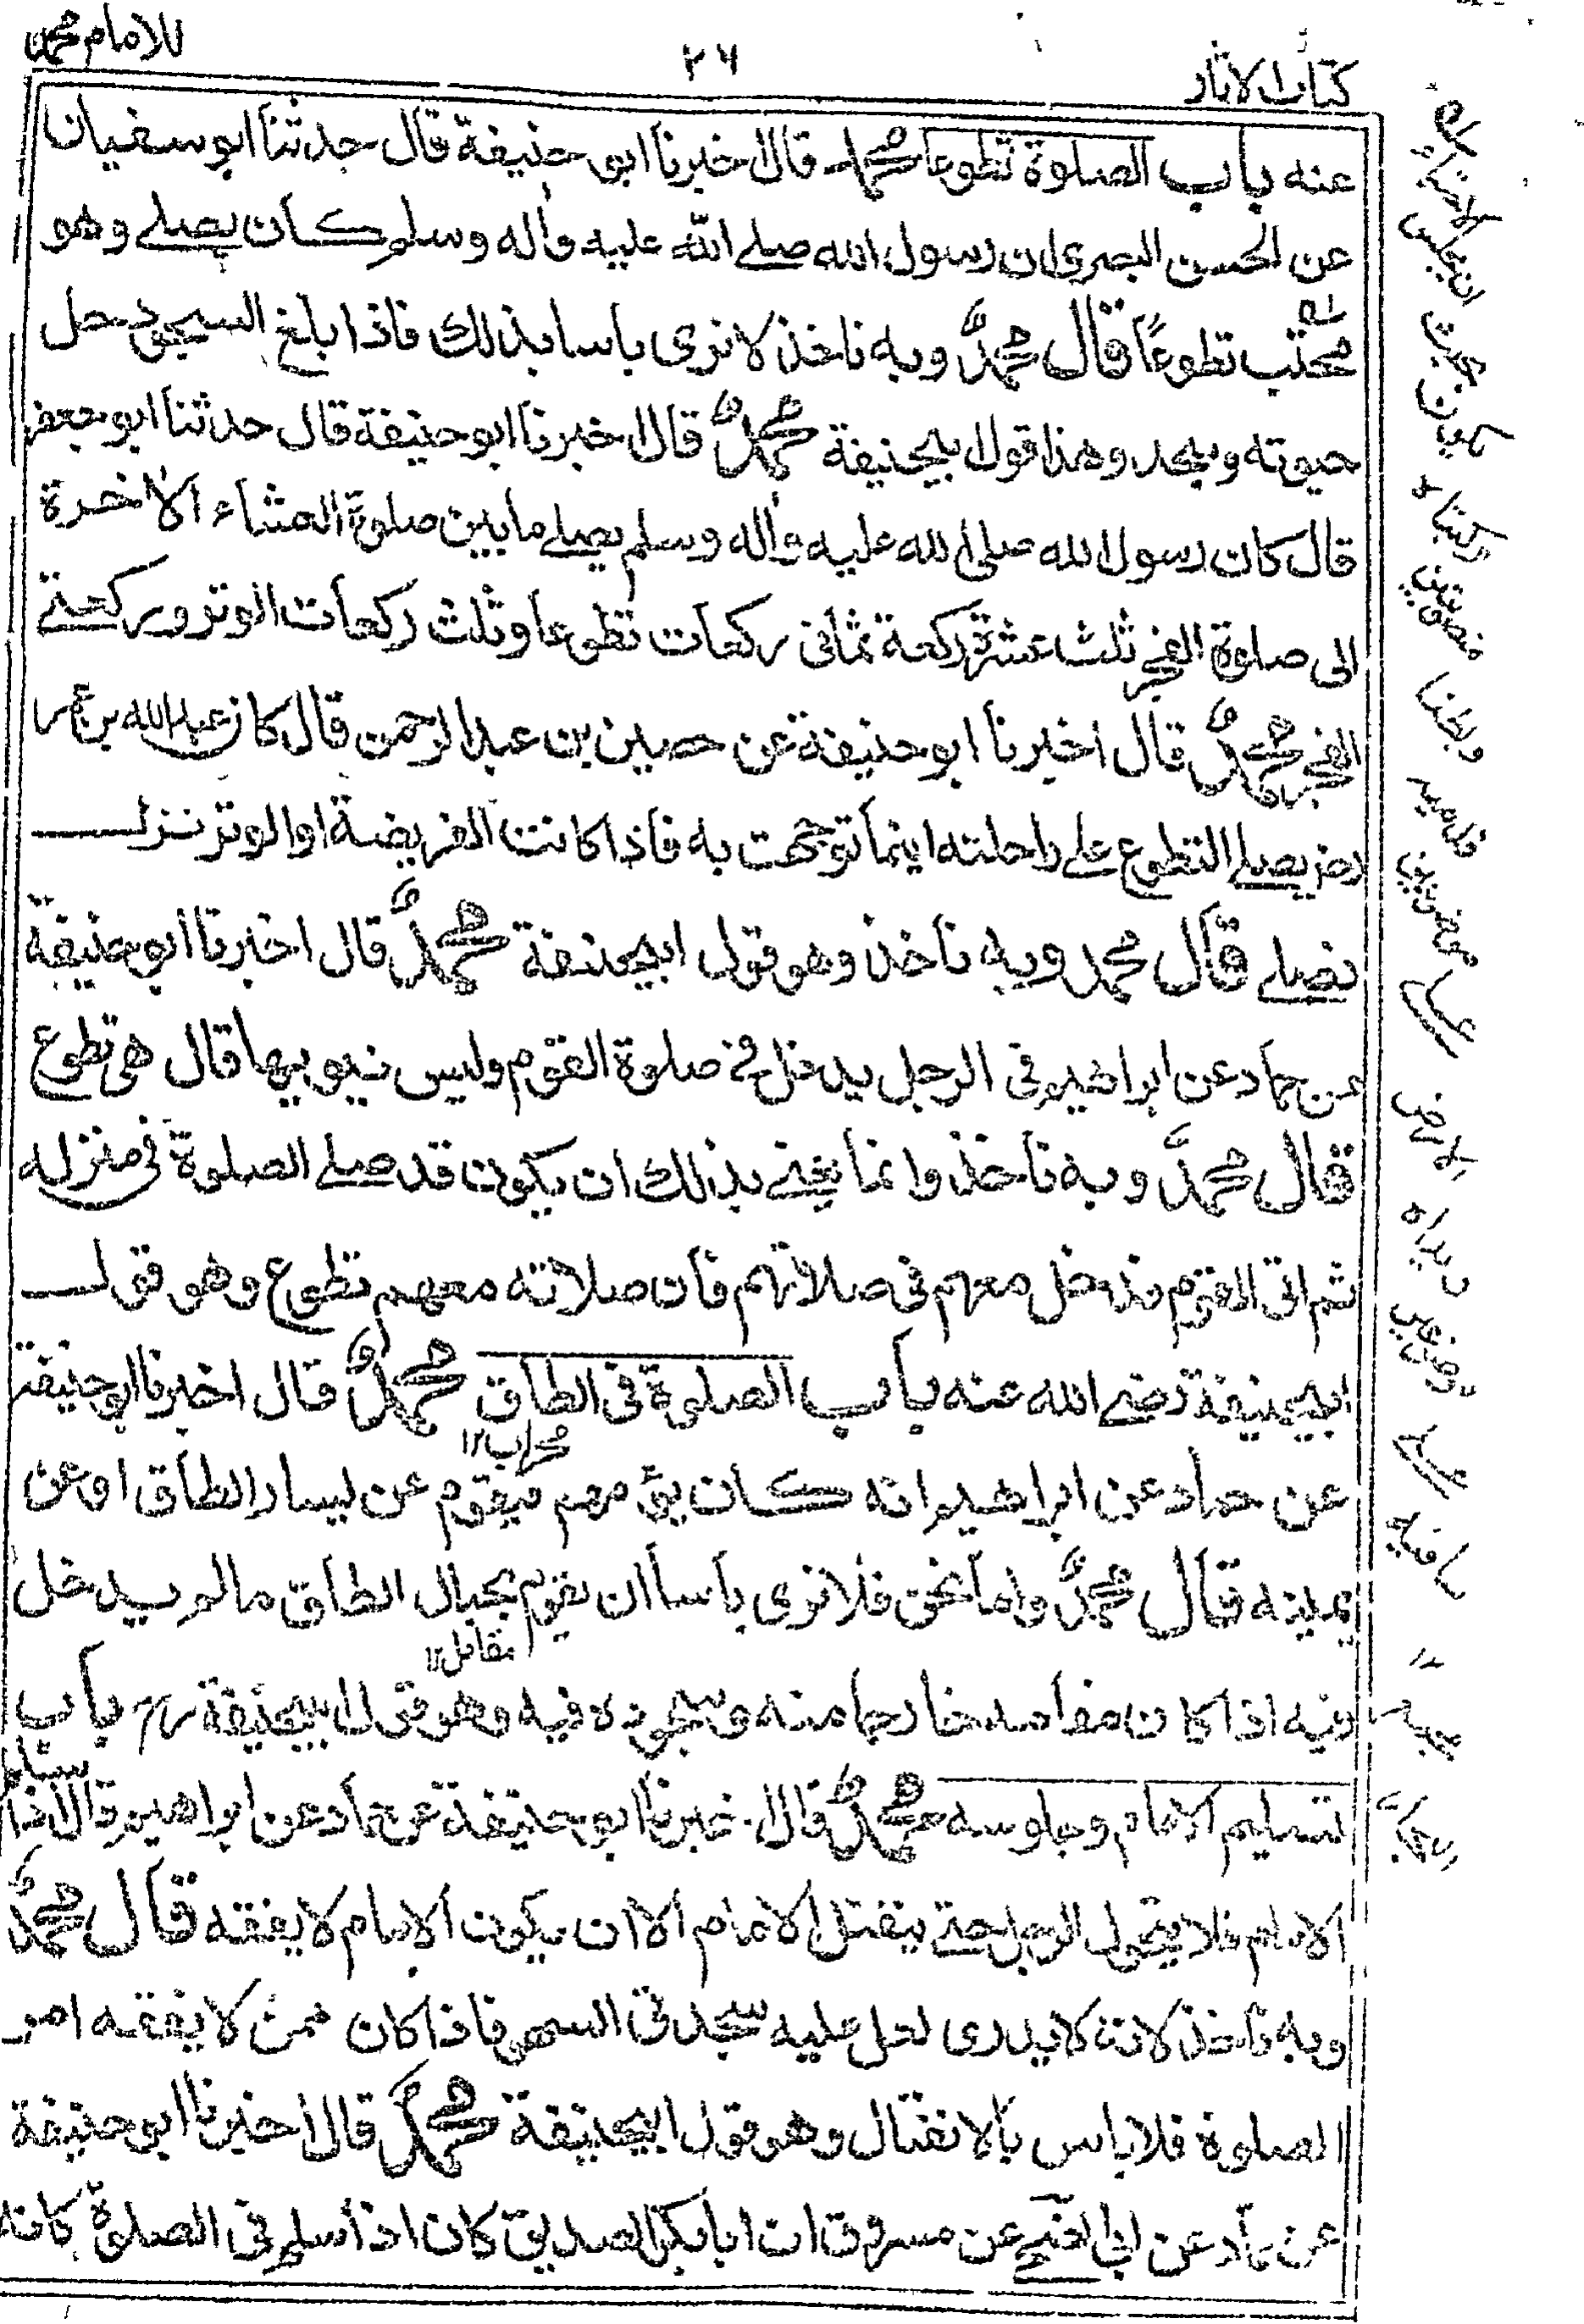 كتاب الاثار ٢٦ للامام محمد
عنه باب الصلوة تطوعا محمد قال اخبرنا ابو حنيفة قال حدثنا ابو سفيان
عن الحسن البصرى ان رسول الله صلے الله عليه واٰله وسلم كان يصلے وهو
محتب تطوعاً قال محمدؒ وبه ناخذ لا نرى باسا بذلك فاذا بلغ السجود حل
حبوته وسجد وهذا قول ابيحنيفة محمدؒ قال اخبرنا ابو حنيفة قال حدثنا ابو جعفر
قال كان رسول الله صلى الله عليه واٰله وسلم يصلے ما بين صلوة العشاء الاخرة
الى صلوة الفجر ثلث عشرة ركعة ثمانى ركعات تطوعا وثلث ركعات الوتر وركعتے
الفجر محمدؒ قال اخبرنا ابو حنيفة عن حصين بن عبد الرحمن قال كان عبد الله بن عمر
رضـ يصلے التطوع على راحلته اينما توجهت به فاذا كانت الفريضة او الوتر نزل
فصلے قال محمد وبه ناخذ وهو قول ابيحنيفة محمدؒ قال اخبرنا ابو حنيفة
عن حماد عن ابراهيم فى الرجل يدخل فى صلوة القوم وليس ينويها قال هى تطوع
قال محمدؒ وبه ناخذ وانما يعنے بذلك ان يكون قد صلے الصلوة فى منزله
ثم اتى القوم فدخل معهم فى صلاتهم فان صلاته معهم تطوع وهو قول
ابيحنيفة رضے الله عنه باب الصلوة فى الطاق محمدؒ قال اخبرنا ابو حنيفة
محراب ١٢
عن حماد عن ابراهيم انه كان يؤمهم فيقوم عن يسار الطاق او عن
يمينه قال محمدؒ واما نحن فلا نرى باسا ان يقوم بحيال الطاق ما لم يدخل
مقابل ١٢
فيه اذا كان مقامه خارجا منه وسجوده فيه وهو قول ابيحنيفة رح باب
تسليم الامام وجلوسه محمدؒ قال اخبرنا ابو حنيفة عن حماد عن ابراهيم قال اذا سلم
الامام فلا يتحول الرجل حتے ينفتل الامام الا ان يكون الامام لا يفقه قال محمدؒ
وبه ناخذ لانه لا يدرى لعل عليه سجدتى السهو فاذا كان ممن لا يفقه امر
الصلوة فلا باس بالانفتال وهو قول ابيحنيفة محمدؒ قال اخبرنا ابو حنيفة
عن حماد عن ابى الضحے عن مسروق ان ابا بكر الصديق كان اذا سلم فى الصلوة كانه
ان يجلس
بحيث
يكون
ركبتاه
منصوبتين
وبطنا
قدميه
موضوعتين
على
الارض
ويداه
موضوعتين
على
ساقيه
١٢